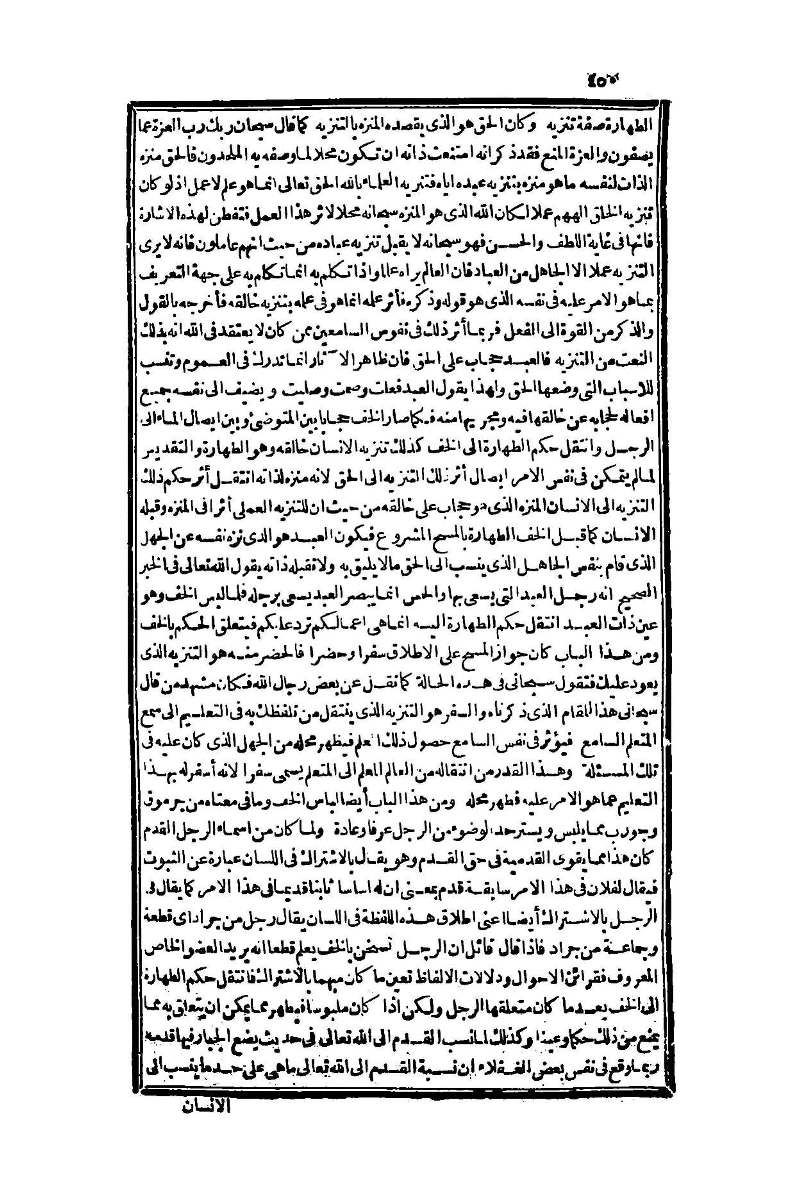 ٤٥٣
الطهارة صفة تنزيه وكان الحق هو الذى يقصده المنزه بالتنزيه كما قال سبحان ربك رب العزة عما
يصفون والعزة المنع فقد ذكر انه امتنعت ذاته ان تكون محلا لما وصفه به الملحدون فالحق منزه
الذات لنفسه ما هو منزه بتنزيه عبده اياه فتنزيه العلماء بالله الحق تعالى انما هو علم لا عمل اذ لو كان
تنزيه الخلق الههم عملا لكان الله الذى هو المنزه سبحانه محلا لاثر هذا العمل فتفطن لهذه الاشارة
فانها فى غاية اللطف والحسن فهو سبحانه لا يقبل تنزيه عباده من حيث انهم عاملون فانه لا يرى
التنزيه عملا الا الجاهل من العباد فان العالم يراه علما واذا تكلم به انما تكلم به على جهة التعريف
بما هو الامر عليه فى نفسه الذى هو قوله وذكره فأثر عمله انما هو فى علمه بتنزيه خالقه فأخرجه بالقول
والذكر من القوة الى الفعل فربما أثر ذلك فى نفوس السامعين ممن كان لا يعتقد فى الله انه بذلك
النعت من التنزيه فالعبد حجاب على الحق فان ظاهر الآثار انما تدرك فى العموم وتنسب
للاسباب التى وضعها الحق ولهذا يقول العبد فعلت وصمت وصليت ويضيف الى نفسه جميع
افعاله لحجابه عن خالقها فيه ومجريها منه فكما صار الخف حجابا بين المتوضئ وبين ايصال الماء الى
الرجل وانتقل حكم الطهارة الى الخف كذلك تنزيه الانسان خالقه وهو الطهارة والتقديس
لما لم يتمكن فى نفس الامر ايصال أثر ذلك التنزيه الى الحق لانه منزه لذاته انتقل أثر حكم ذلك
التنزيه الى الانسان المنزه الذى هو حجاب على خالقه من حيث ان للتنزيه العملى أثرا فى المنزه وقبله
الانسان كما قبل الخف الطهارة بالمسح المشروع فيكون العبد هو الذى نزه نفسه عن الجهل
الذى قام بنفس الجاهل الذى ينسب الى الحق ما لا يليق به ولا تقبله ذاته يقول الله تعالى فى الخبر
الصحيح انه رجل العبد التى يسعى بها والحس انما يبصر العبد يسعى برجله فلما لبس الخف وهو
عين ذات العبد انتقل حكم الطهارة اليه انما هى اعمالكم ترد عليكم فيتعلق الحكم بالخف
ومن هذا الباب كان جواز المسح على الاطلاق سفرا وحضرا فالحضر منه هو التنزيه الذى
يعود عليك فتقول سبحانى فى هذه الحالة كما نقل عن بعض رجال الله فكان مشهد من قال
سبحانى هذا المقام الذى ذكرناه والسفر هو التنزيه الذى ينتقل من تلفظك به فى التعليم الى سمع
المتعلم السامع فيؤثر فى نفس السامع حصول ذلك العلم فيطهر محله من الجهل الذى كان عليه فى
تلك المسئلة وهذا القدر من انتقاله من العالم المعلم الى المتعلم يسمى سفرا لانه أسفر له بهذا
التعليم عما هو الامر عليه فطهر محله ومن هذا الباب أيضا لباس الخف وما فى معناه من جرموق
وجورب مما يلبس ويستر حد الوضوء من الرجل عرفا وعادة ولما كان من اسماء الرجل القدم
كان هذا مما يقوى القدمية فى حق القدم وهو يقال بالاشتراك فى اللسان عبارة عن الثبوت
فيقال لفلان فى هذا الامر سابقة قدم بمعنى ان له اساسا ثابتا قديما فى هذا الامر كما يقال فى
الرجل بالاشتراك أيضا اعنى اطلاق هذه اللفظة فى اللسان يقال رجل من جراد اى قطعة
وجماعة من جراد فاذا قال قائل ان الرجل تسخن بالخف يعلم قطعا انه يريد العضو الخاص
المعروف فقرائن الاحوال ودلالات الالفاظ تعين ما كان مبهما بالاشتراك فانتقل حكم الطهارة
الى الخف بعد ما كان متعلقها الرجل ولكن اذا كان ملبوسا فيطهر مما يمكن ان يتعلق به مما
يمنع من ذلك حكما وعينا وكذلك لما نسب القدم الى الله تعالى فى حديث يضع الجبار فيها قدمه
ربما وقع فى نفس بعض العقلاء ان نسبة القدم الى الله تعالى ما هى على حد ما ينسب الى
الانسان